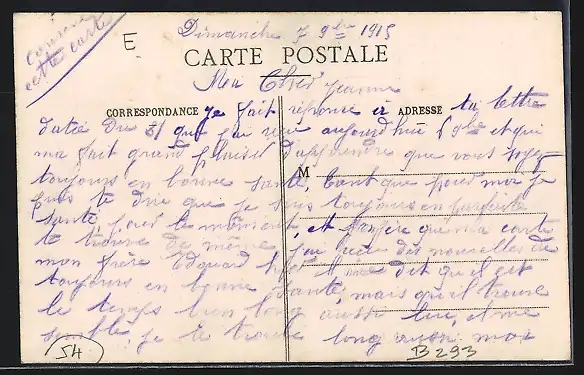 conserve
cette carte
Dimanche 7 9bre 1915
E
CARTE POSTALE
Ma Cher Jeanne
CORRESPONDANCE
ADRESSE
Je fait réponse à ta lettre
datée du 31 que j'ai reçu aujourd'hui 6 9bre et qui
ma fait grand plaisir d'apprendre que vous soyez
M
toujours en bonne santé, tant que pour moi je
puis te dire que je suis toujours en parfaite
santé pour le moment, et j'espère que ma carte
te trouve de même j'ai des nouvelles de
mon frère Edouard dit qu'il est
toujours en bonne santé, mais qu'il trouve
le temps bien long aussi lui, et me
semble je le trouve long aussi moi
54
B293